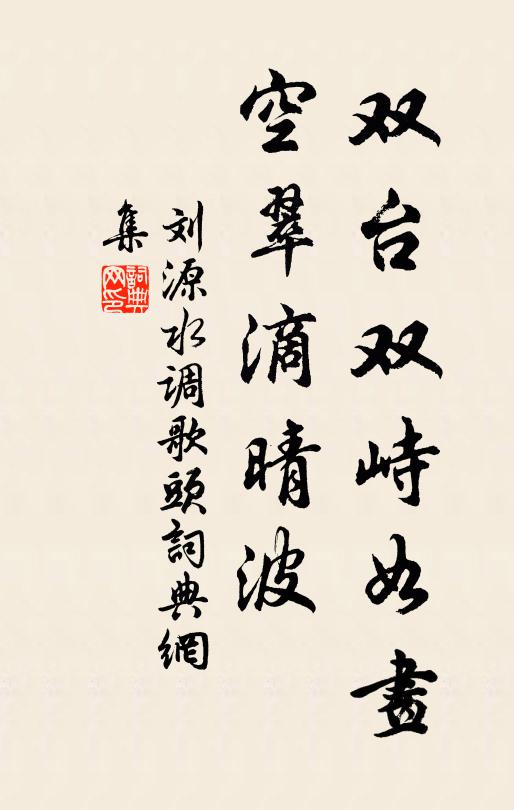 双台双峙如畫
空翠滴晴波
刘源水调歌頭詞典網
集
詞典网印